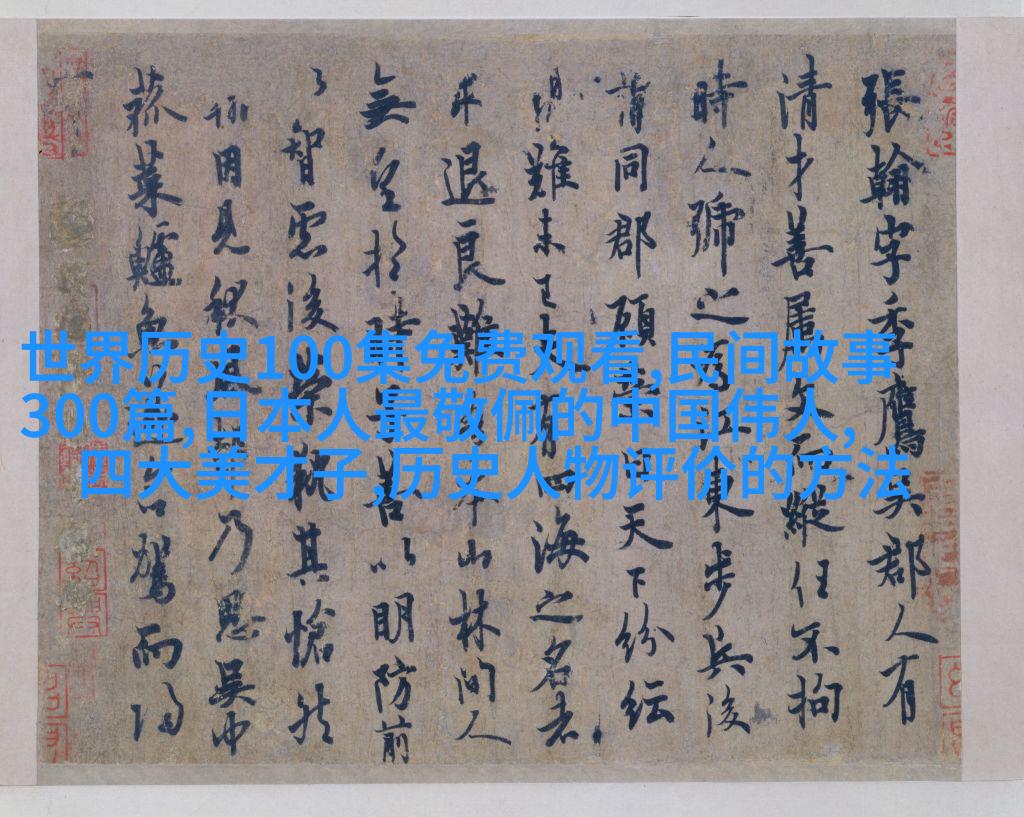 世界历史100集免费观看,民间故事
300篇,日本人最敬佩的中国伟人,
四大美才子,历史人物评价的方法
張翰字季鷹吳郡人有
清才善属文而縱任不拘
時人號之為江東步兵後
同郡顧榮曰天下紛紜
難未已夫有四海之名者
求退良難吾本山林間人
無望於時子善以明防前
以智慮後榮執其愴然
翰因見秋風起乃思吳中
菰菜鱸魚遂命駕而歸